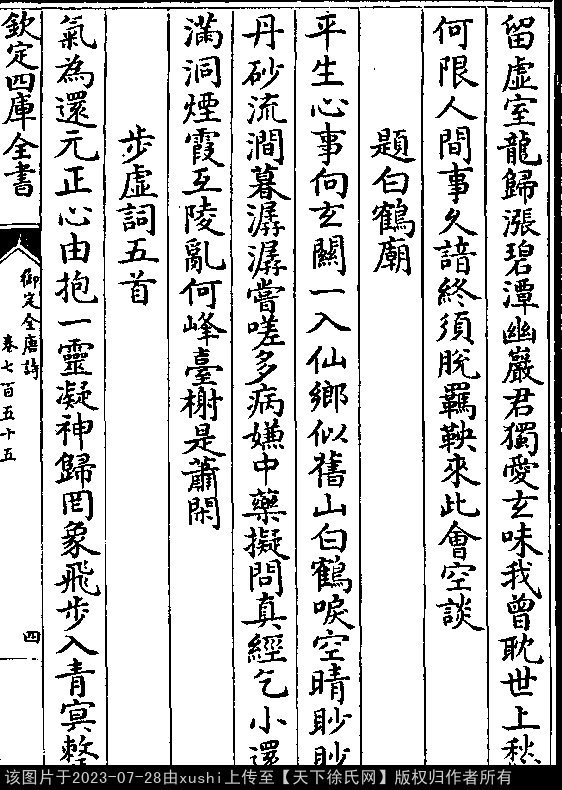 留虚室龍歸漲碧潭幽巖君獨愛玄味我曾耽世上愁
何限人間事久諳終須脫羈鞅來此會空談
題白鶴廟
平生心事向玄關一入仙鄉似舊山白鶴唳空晴眇眇
丹砂流澗暮潺潺嘗嗟多病嫌中藥擬問真經乞小還
滿洞煙霞互陵亂何峰臺榭是蕭閑
步虚詞五首
氣為還元正心由抱一靈凝神歸罔象飛步入青冥整
欽定四庫全書
御定全唐詩
卷七百五十五
四
该图片于2023-07-28由xushi上传至【天下徐氏网】版权归作者所有